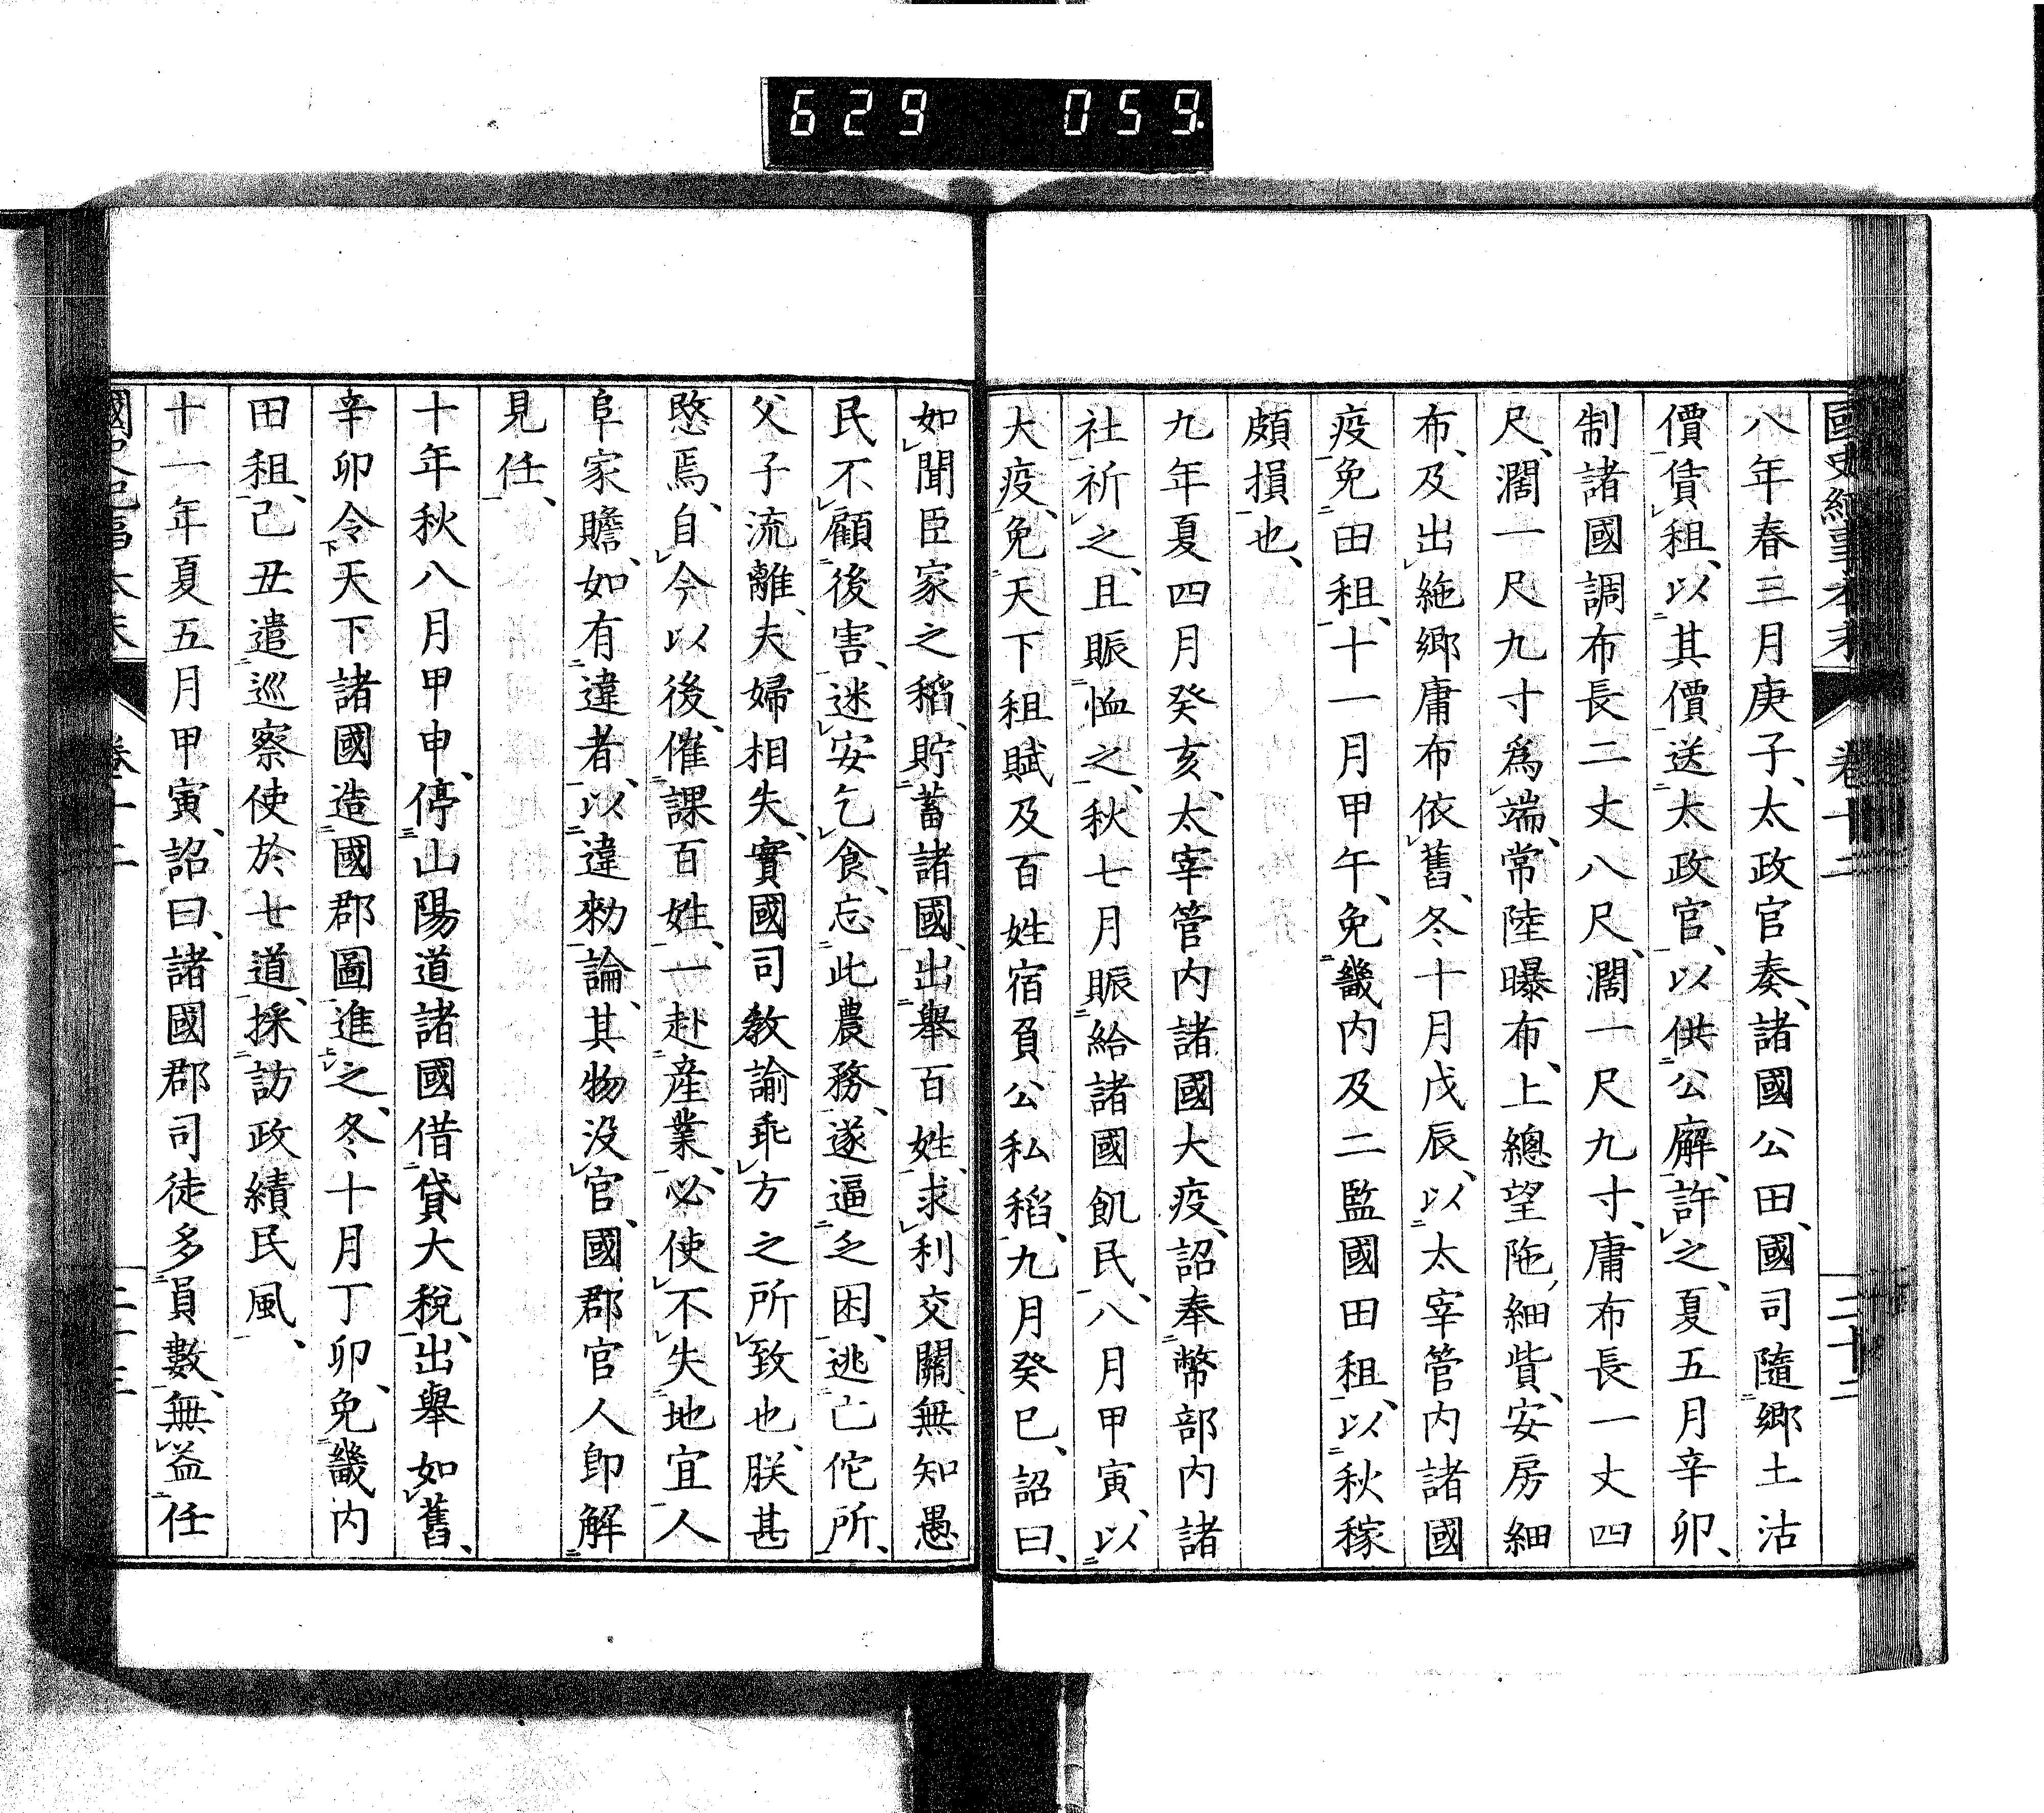 629 059
國史紀事本末 卷十二 二十二
八年春三月庚子、太政官奏、諸國公田、國司隨鄉土沽
價賃租、以其價送太政官、以供公廨、許之、夏五月辛卯、
制諸國調布長二丈八尺、濶一尺九寸、庸布長一丈四
尺、濶一尺九寸爲端、常陸曝布、上總望陁細貲、安房細
布、及出絁鄉庸布依舊、冬十月戊辰、以太宰管内諸國
疫免田租、十一月甲午、免畿内及二監國田租、以秋稼
頗損也、
九年夏四月癸亥、太宰管内諸國大疫、詔奉幣部内諸
社祈之、且賑恤之、秋七月賑給諸國飢民、八月甲寅、以
大疫、免天下租賦及百姓宿負公私稻、九月癸巳、詔曰、
如聞臣家之稻、貯蓄諸國、出舉百姓、求利交關、無知愚
民不顧後害、迷安乞食、忘此農務、遂逼乏困、逃亡佗所、
父子流離、夫婦相失、實國司教諭乖方之所致也、朕甚
愍焉、自今以後、催課百姓、一赴産業、必使不失地宜人
阜家贍、如有違者、以違勅論、其物没官、國郡官人卽解
見任、
十年秋八月甲申、停山陽道諸國借貸大稅、出舉如舊、
辛卯令天下諸國造國郡圖進之、冬十月丁卯、免畿内
田租、己丑遣巡察使於七道、採訪政績民風、
十一年夏五月甲寅、詔曰、諸國郡司徒多員數、無益任